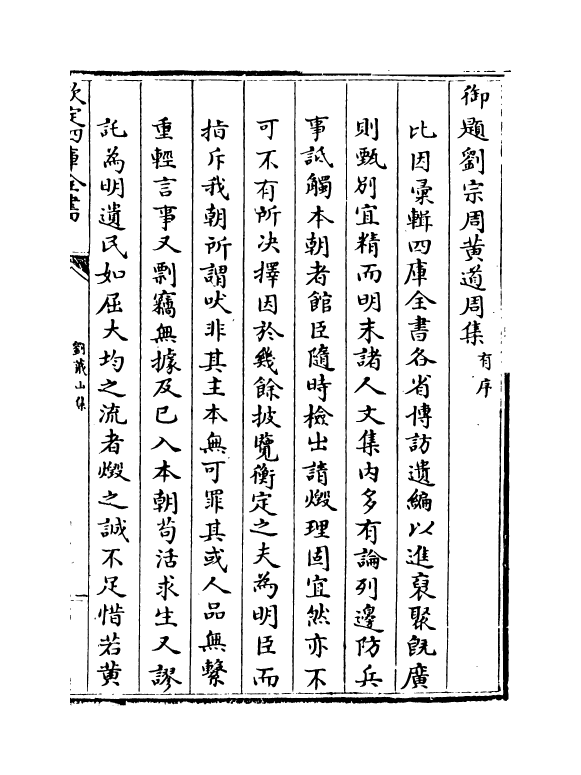 御題劉宗周黃道周集有序
比因彙輯四庫全書各省博訪遺編以進裒聚既廣
則甄別宜精而明末諸人文集內多有論列邊防兵
事詆觸本朝者館臣隨時檢出請燬理固宜然亦不
可不有所決擇因於幾餘披覽衡定之夫為明臣而
指斥我朝所謂吠非其主本無可罪其或人品無繫
重輕言事又剽竊無據及已入本朝苟活求生又謬
託為明遺民如屈大均之流者燬之誠不足惜若黃
欽定四庫全書
劉蕺山集